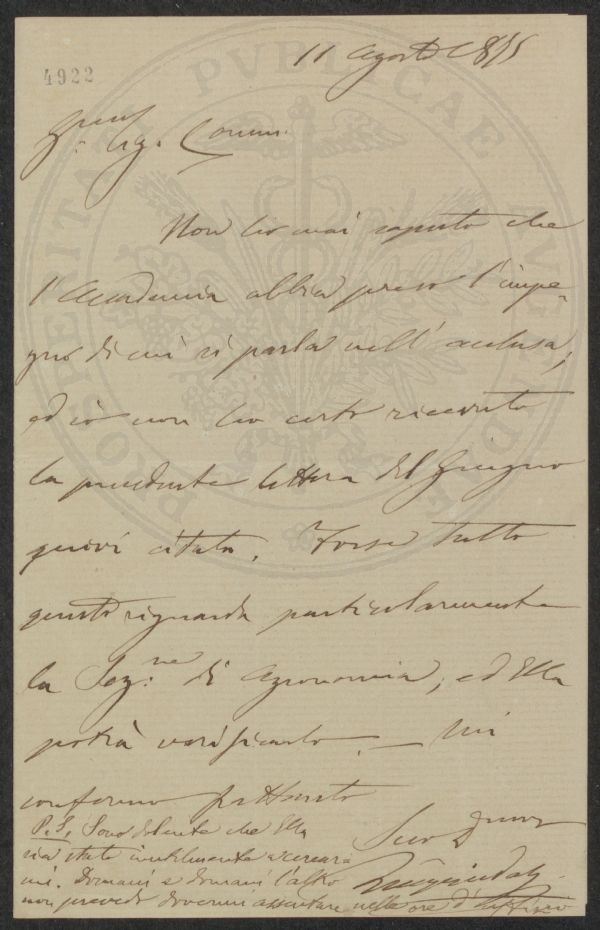 4922
11 Agosto 1875
Sig. Comm.
Non ho mai saputo che
l'Accademia abbia preso l'impe-
gno di cui si parla nell'acclusa,
ed io non ho certo ricevuto
la precedente lettera del Giugno
quivi citata. Forse tutto
questo riguarda particolarmente
la Sez.ne di Agronomia, ed Ella
potrà verificarlo. — Mi
confermo frattanto
Suo
P.S. Sono dolente che Ella
sia stata inutilmente a cercar
mi. Domani e domani l'altro
non prevedo dovermi assentare nelle ore d'uffizio
PROSPERITATI PVBLICAE AVGENDAE